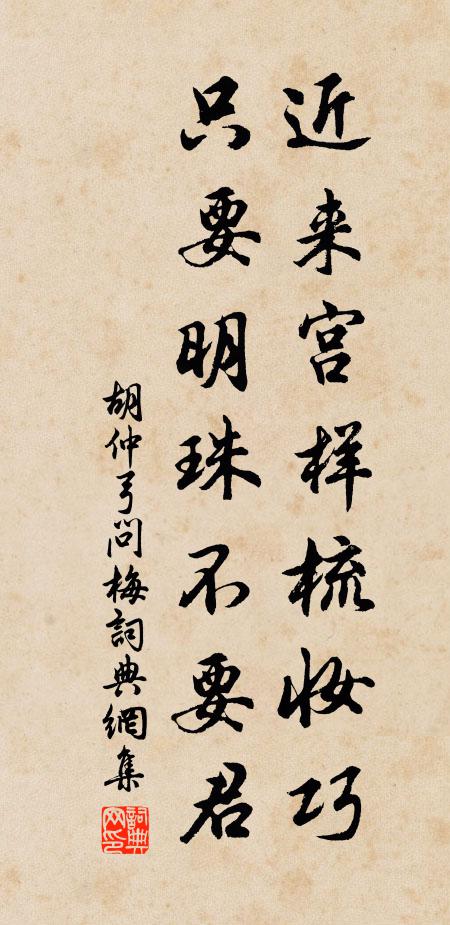 近来宫样梳妆巧
只要明珠不要君
胡仲弓问梅词典網集
词典网印